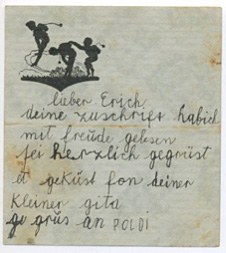 lieber Erich
deine zuschrift habich
mit freude gelesen
sei herzlich gegrüst
et geküst fon deiner
kleiner gita
grus an POLDI